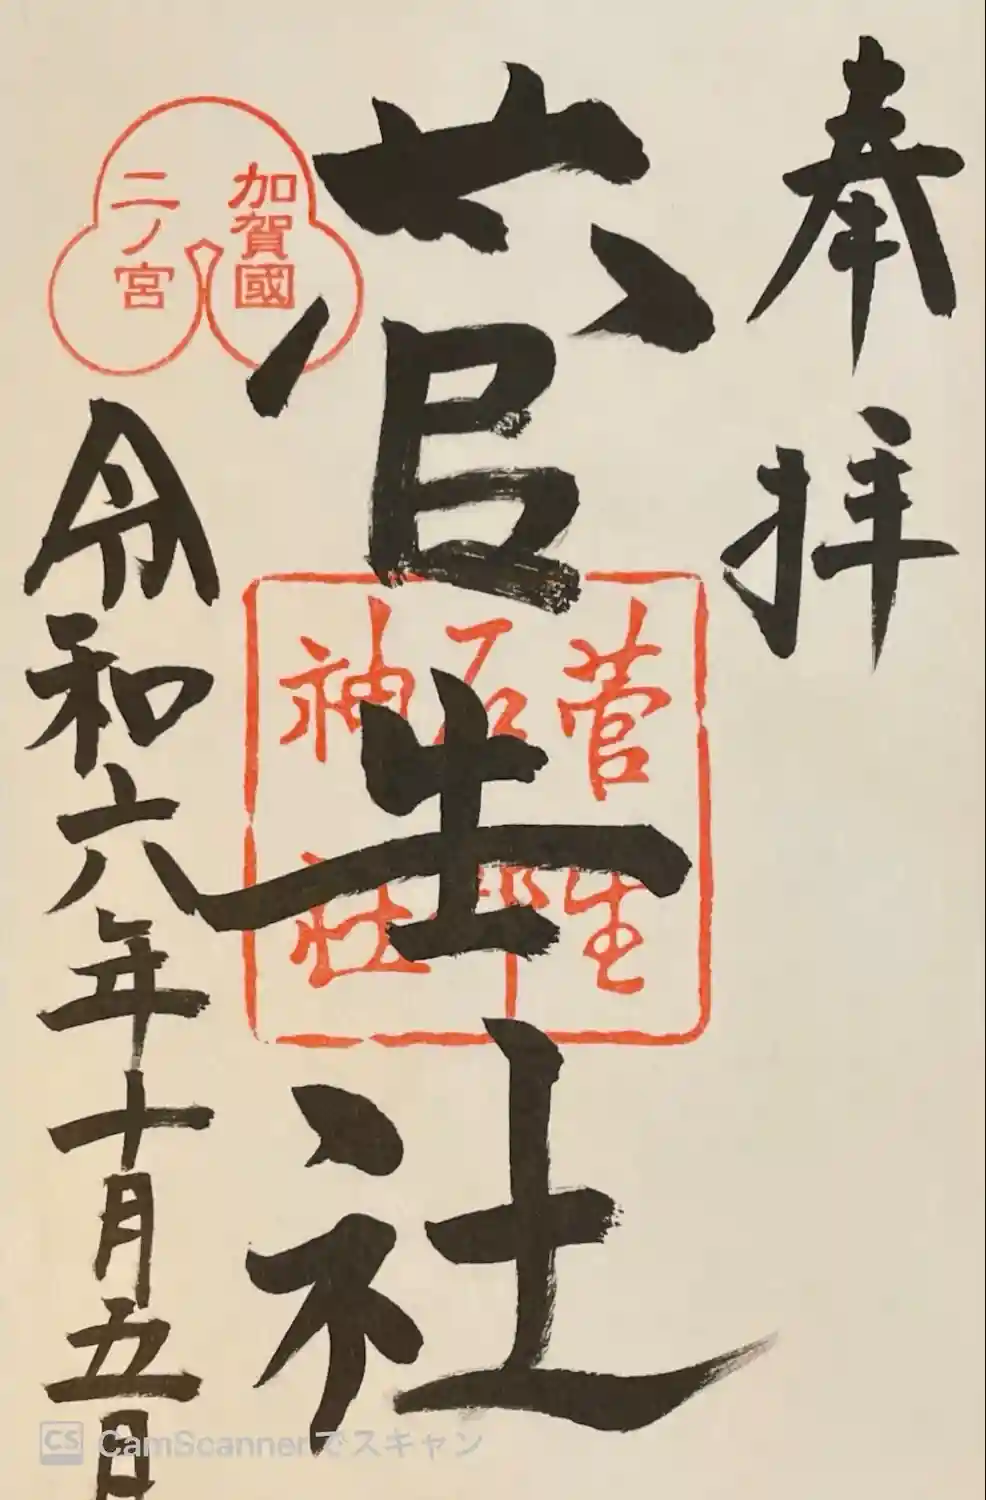 奉拝
菅生社
加賀國
二ノ宮
菅生
石部
神社
令和六年十月五日
CS CamScannerでスキャン